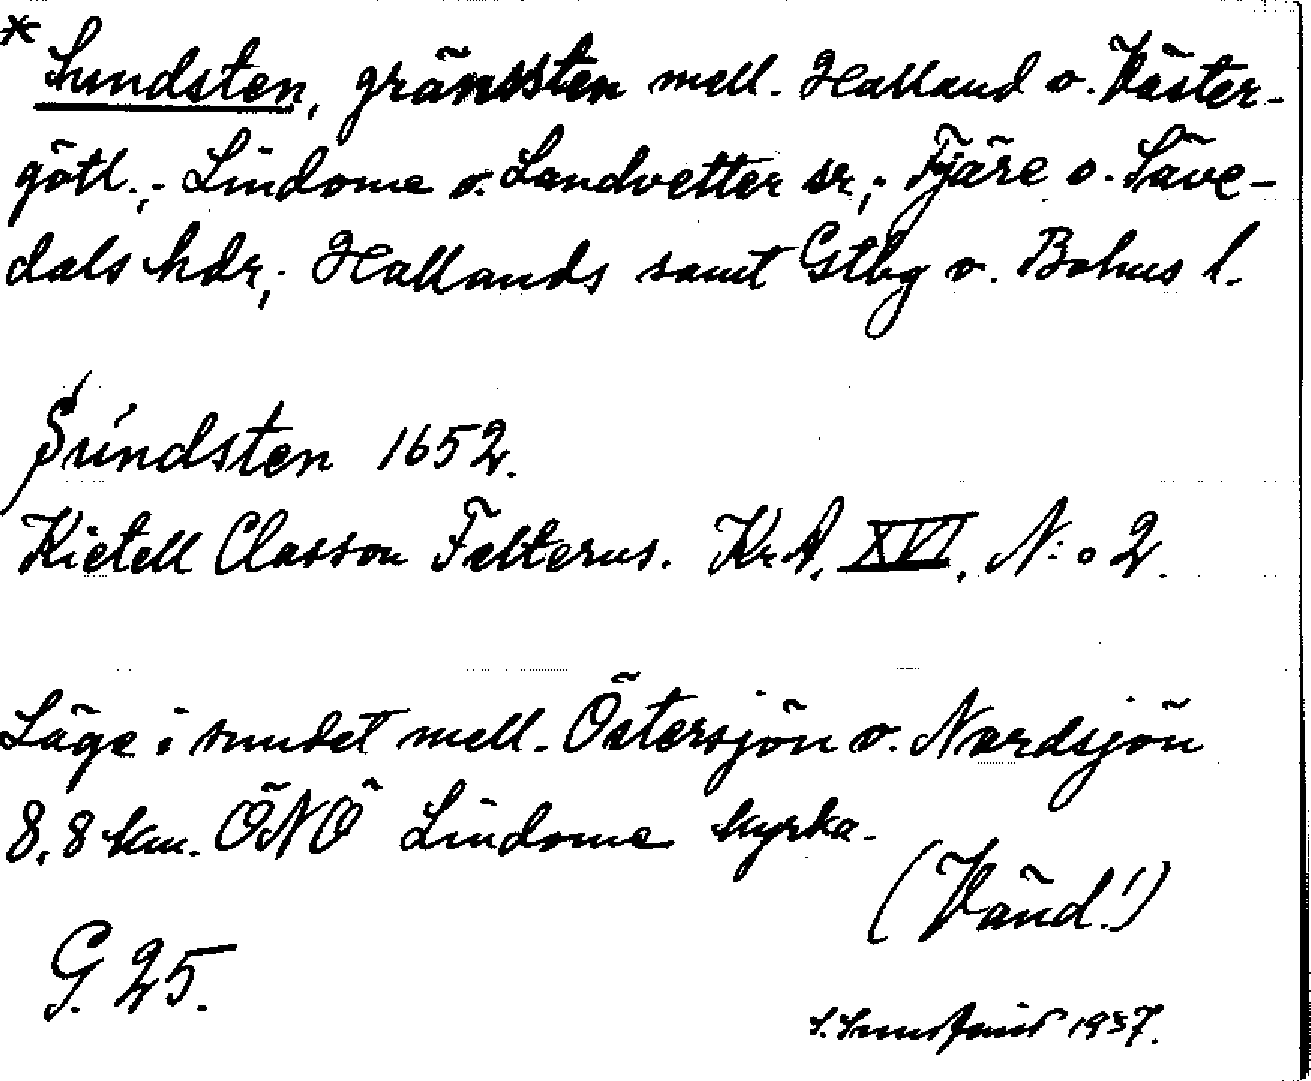 * Sundsten, gränssten mell. Halland o. Väster-
götl.; Lindome o. Landvetter sr; Fjäre o. Säve-
dals hdr; Hallands samt Gtbg o. Bohus l.
Sundsten 1652.
Kietell Classon Felterus. Kr.A. XVI. N:o 2.
Läge i sundet mell. Östersjön o. Nordsjön
8,8 km. ÖNÖ Lindome kyrka.
(Vänd!)
G. 25.
1937.